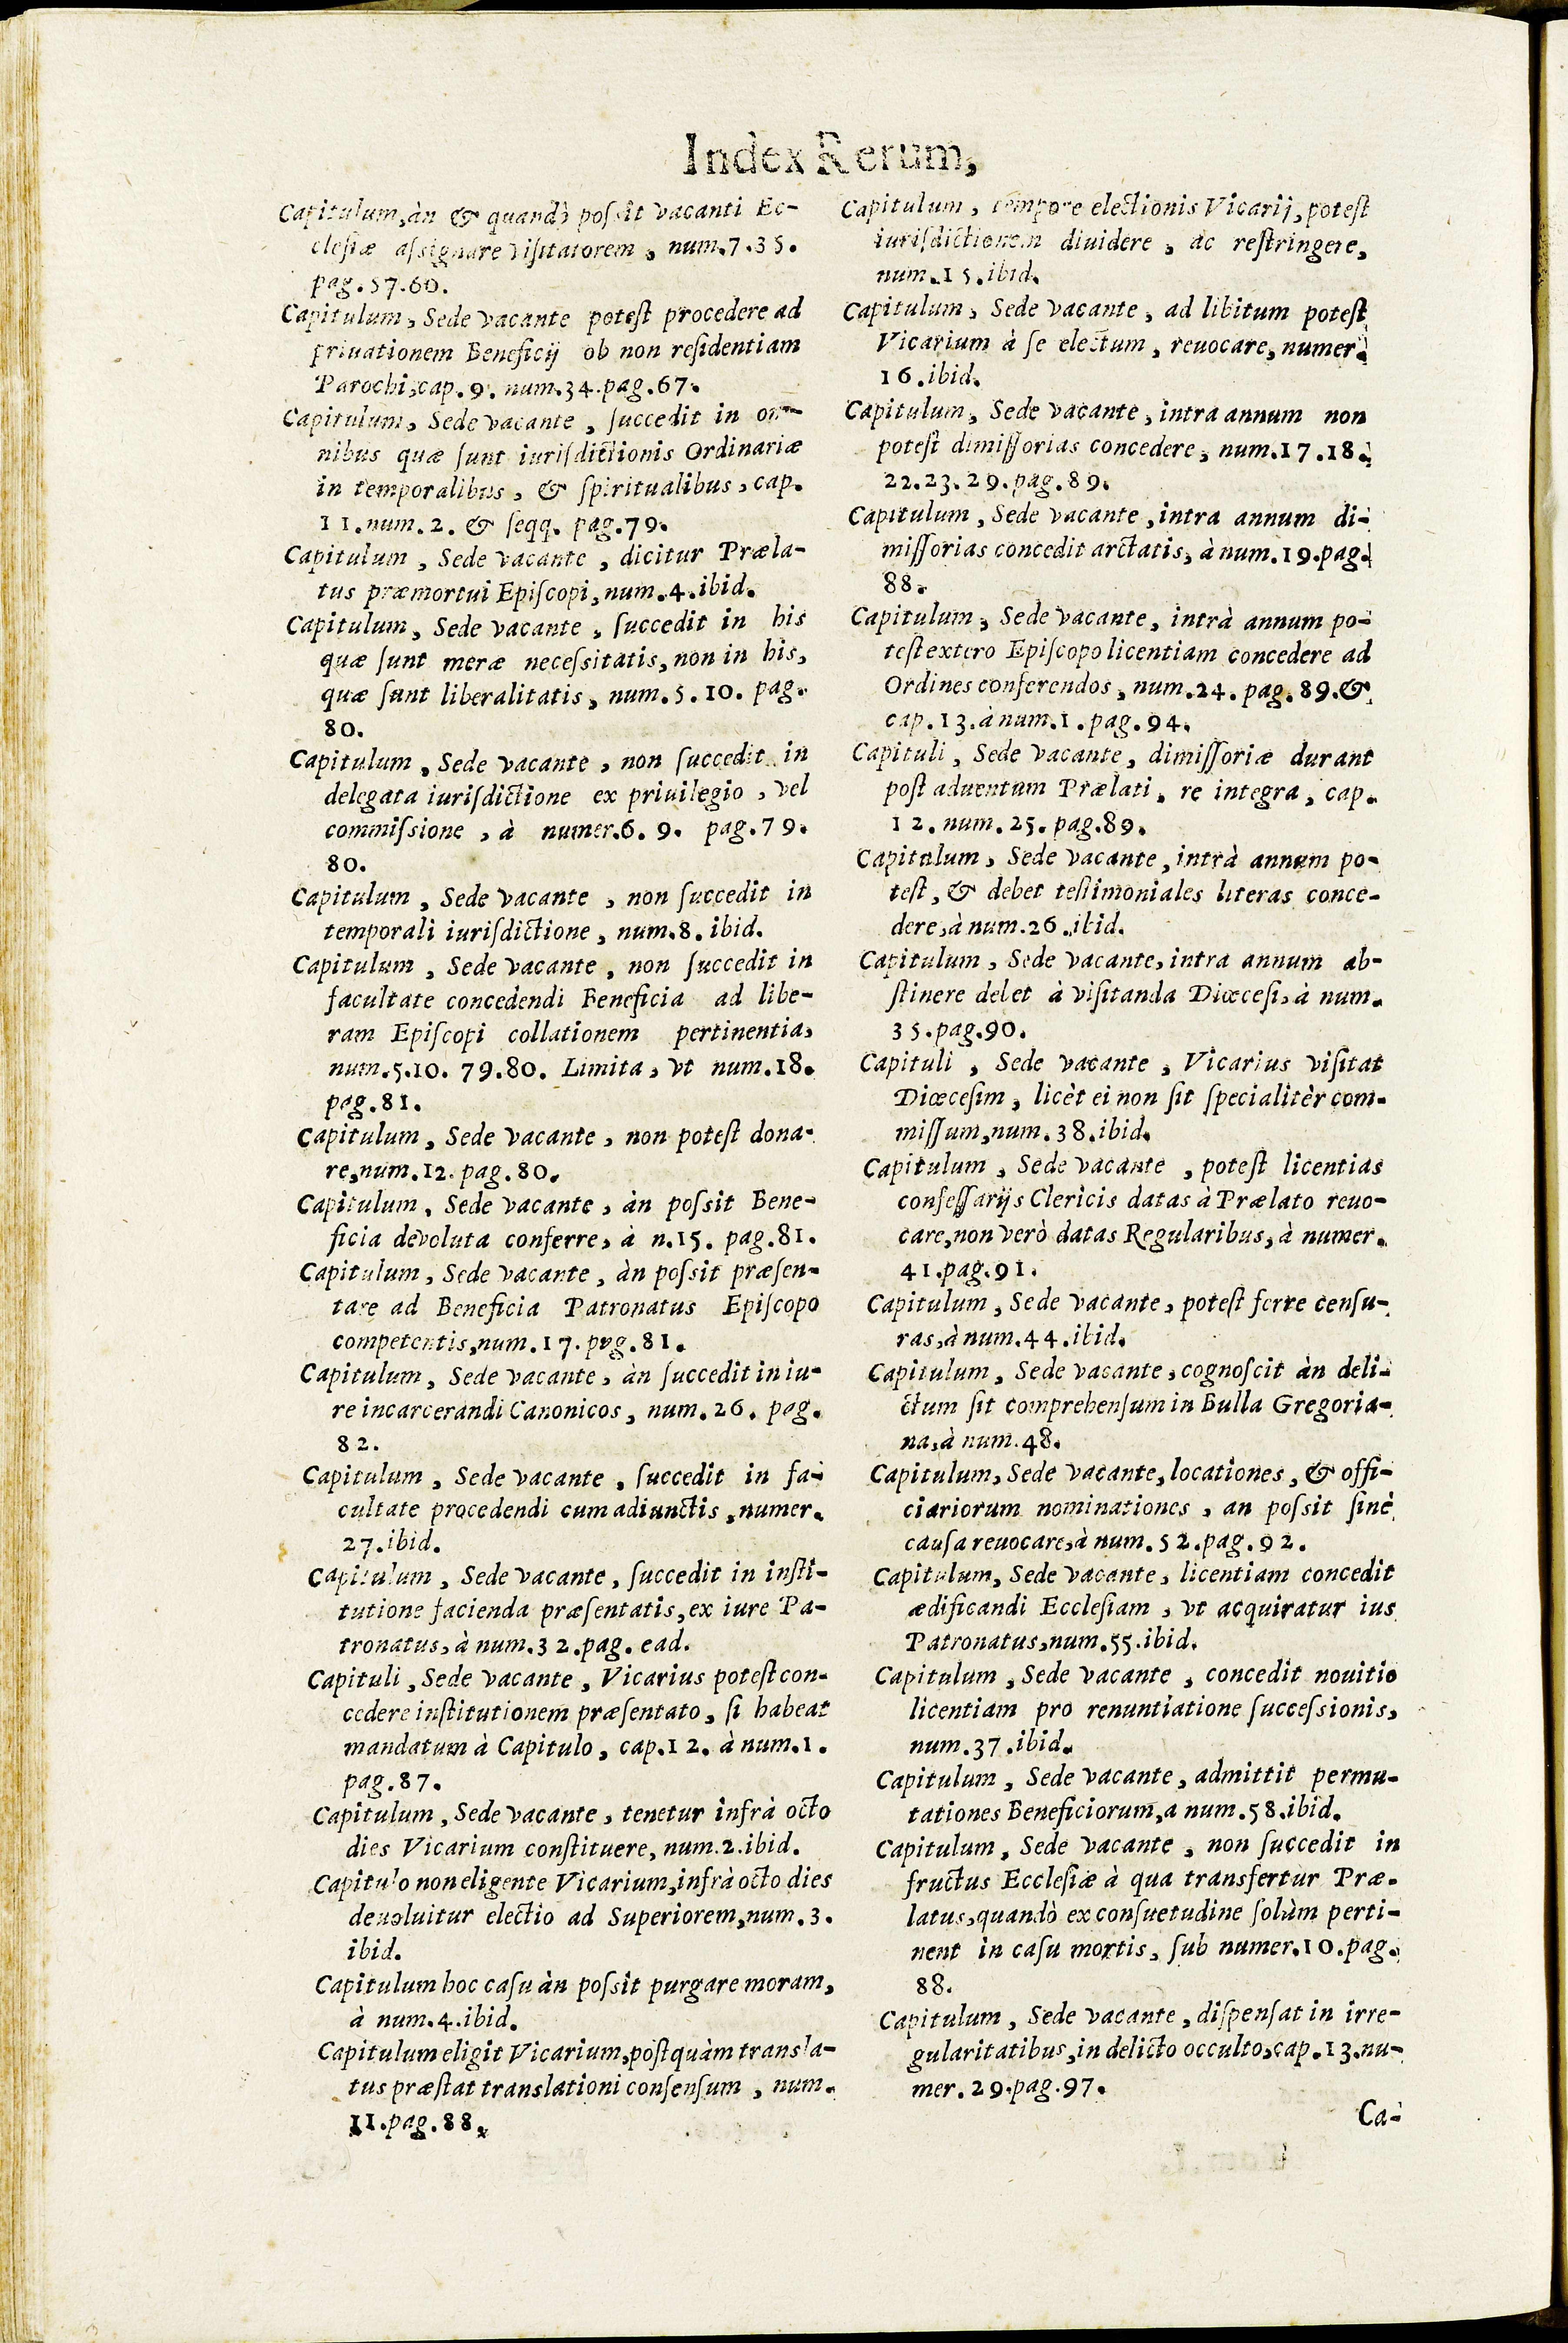 Index Rerum,
Capitulum, àn & quandò possit vacanti Ec-
clesiæ assignare visitatorem, num.7.35.
pag.57.60.
Capitulum, Sede vacante potest procedere ad
priuationem Beneficij ob non residentiam
Parochi, cap.9. num.34.pag.67.
Capitulum, Sede vacante, succedit in om-
nibus quæ sunt iurisdictionis Ordinariæ
in temporalibus, & spiritualibus, cap.
11.num.2. & seqq. pag.79.
Capitulum, Sede vacante, dicitur Præla-
tus præmortui Episcopi, num.4.ibid.
Capitulum, Sede vacante, succedit in his
quæ sunt meræ necessitatis, non in his,
quæ sunt liberalitatis, num.5.10. pag.
80.
Capitulum, Sede vacante, non succedit in
delegata iurisdictione ex priuilegio, vel
commissione, à numer.6. 9. pag.79.
80.
Capitulum, Sede vacante, non succedit in
temporali iurisdictione, num.8. ibid.
Capitulum, Sede vacante, non succedit in
facultate concedendi Beneficia ad libe-
ram Episcopi collationem pertinentia,
num.5.10. 79.80. Limita, vt num.18.
pag.81.
Capitulum, Sede vacante, non potest dona-
re, num.12. pag.80.
Capitulum, Sede vacante, àn possit Bene-
ficia devoluta conferre, à n.15. pag.81.
Capitulum, Sede vacante, àn possit præsen-
tare ad Beneficia Patronatus Episcopo
competentis, num.17.pag.81.
Capitulum, Sede vacante, àn succedit in iu-
re incarcerandi Canonicos, num.26. pag.
82.
Capitulum, Sede vacante, succedit in fa-
cultate procedendi cum adiunctis, numer.
27.ibid.
Capitulum, Sede vacante, succedit in insti-
tutione facienda præsentatis, ex iure Pa-
tronatus, à num.32.pag. ead.
Capituli, Sede vacante, Vicarius potest con-
cedere institutionem præsentato, si habeat
mandatum à Capitulo, cap.12. à num.1.
pag.87.
Capitulum, Sede vacante, tenetur infrà octo
dies Vicarium constituere, num.2.ibid.
Capitulo non eligente Vicarium, infrà octo dies
deuoluitur electio ad Superiorem, num.3.
ibid.
Capitulum hoc casu àn possit purgare moram,
à num.4.ibid.
Capitulum eligit Vicarium, postquàm transla-
tus præstat translationi consensum, num.
11.pag.88.
Capitulum, tempore electionis Vicarij, potest
iurisdictionem diuidere, ac restringere,
num.15.ibid.
Capitulum, Sede vacante, ad libitum potest
Vicarium à se electum, reuocare, numer.
16.ibid.
Capitulum, Sede vacante, intra annum non
potest dimissorias concedere, num.17.18.
22.23.29.pag.89.
Capitulum, Sede vacante, intra annum di-
missorias concedit arctatis, à num.19.pag.
88.
Capitulum, Sede vacante, intrà annum po-
test extero Episcopo licentiam concedere ad
Ordines conferendos, num.24. pag.89.&
cap.13.à num.1.pag.94.
Capituli, Sede vacante, dimissoriæ durant
post aduentum Prælati, re integra, cap.
12.num.25.pag.89.
Capitulum, Sede vacante, intrà annum po-
test, & debet testimoniales literas conce-
dere, à num.26.ibid.
Capitulum, Sede vacante, intra annum ab-
stinere debet à visitanda Diœcesi, à num.
35.pag.90.
Capituli, Sede vacante, Vicarius visitat
Diœcesim, licèt ei non sit specialitèr com-
missum, num.38.ibid.
Capitulum, Sede vacante, potest licentias
confessarijs Clericis datas à Prælato reuo-
care, non verò datas Regularibus, à numer.
41.pag.91.
Capitulum, Sede vacante, potest ferre censu-
ras, à num.44.ibid.
Capitulum, Sede vacante, cognoscit àn deli-
ctum sit comprehensum in Bulla Gregoria-
na, à num.48.
Capitulum, Sede vacante, locationes, & offi-
ciariorum nominationes, an possit sinè
causa reuocare, à num.52.pag.92.
Capitulum, Sede vacante, licentiam concedit
ædificandi Ecclesiam, vt acquiratur ius
Patronatus, num.55.ibid.
Capitulum, Sede vacante, concedit nouitio
licentiam pro renuntiatione successionis,
num.37.ibid.
Capitulum, Sede vacante, admittit permu-
tationes Beneficiorum, a num.58.ibid.
Capitulum, Sede vacante, non succedit in
fructus Ecclesiæ à qua transfertur Præ-
latus, quandò ex consuetudine solùm perti-
nent in casu mortis, sub numer.10.pag.
88.
Capitulum, Sede vacante, dispensat in irre-
gularitatibus, in delicto occulto, cap.13.nu-
mer.29.pag.97.
Ca-